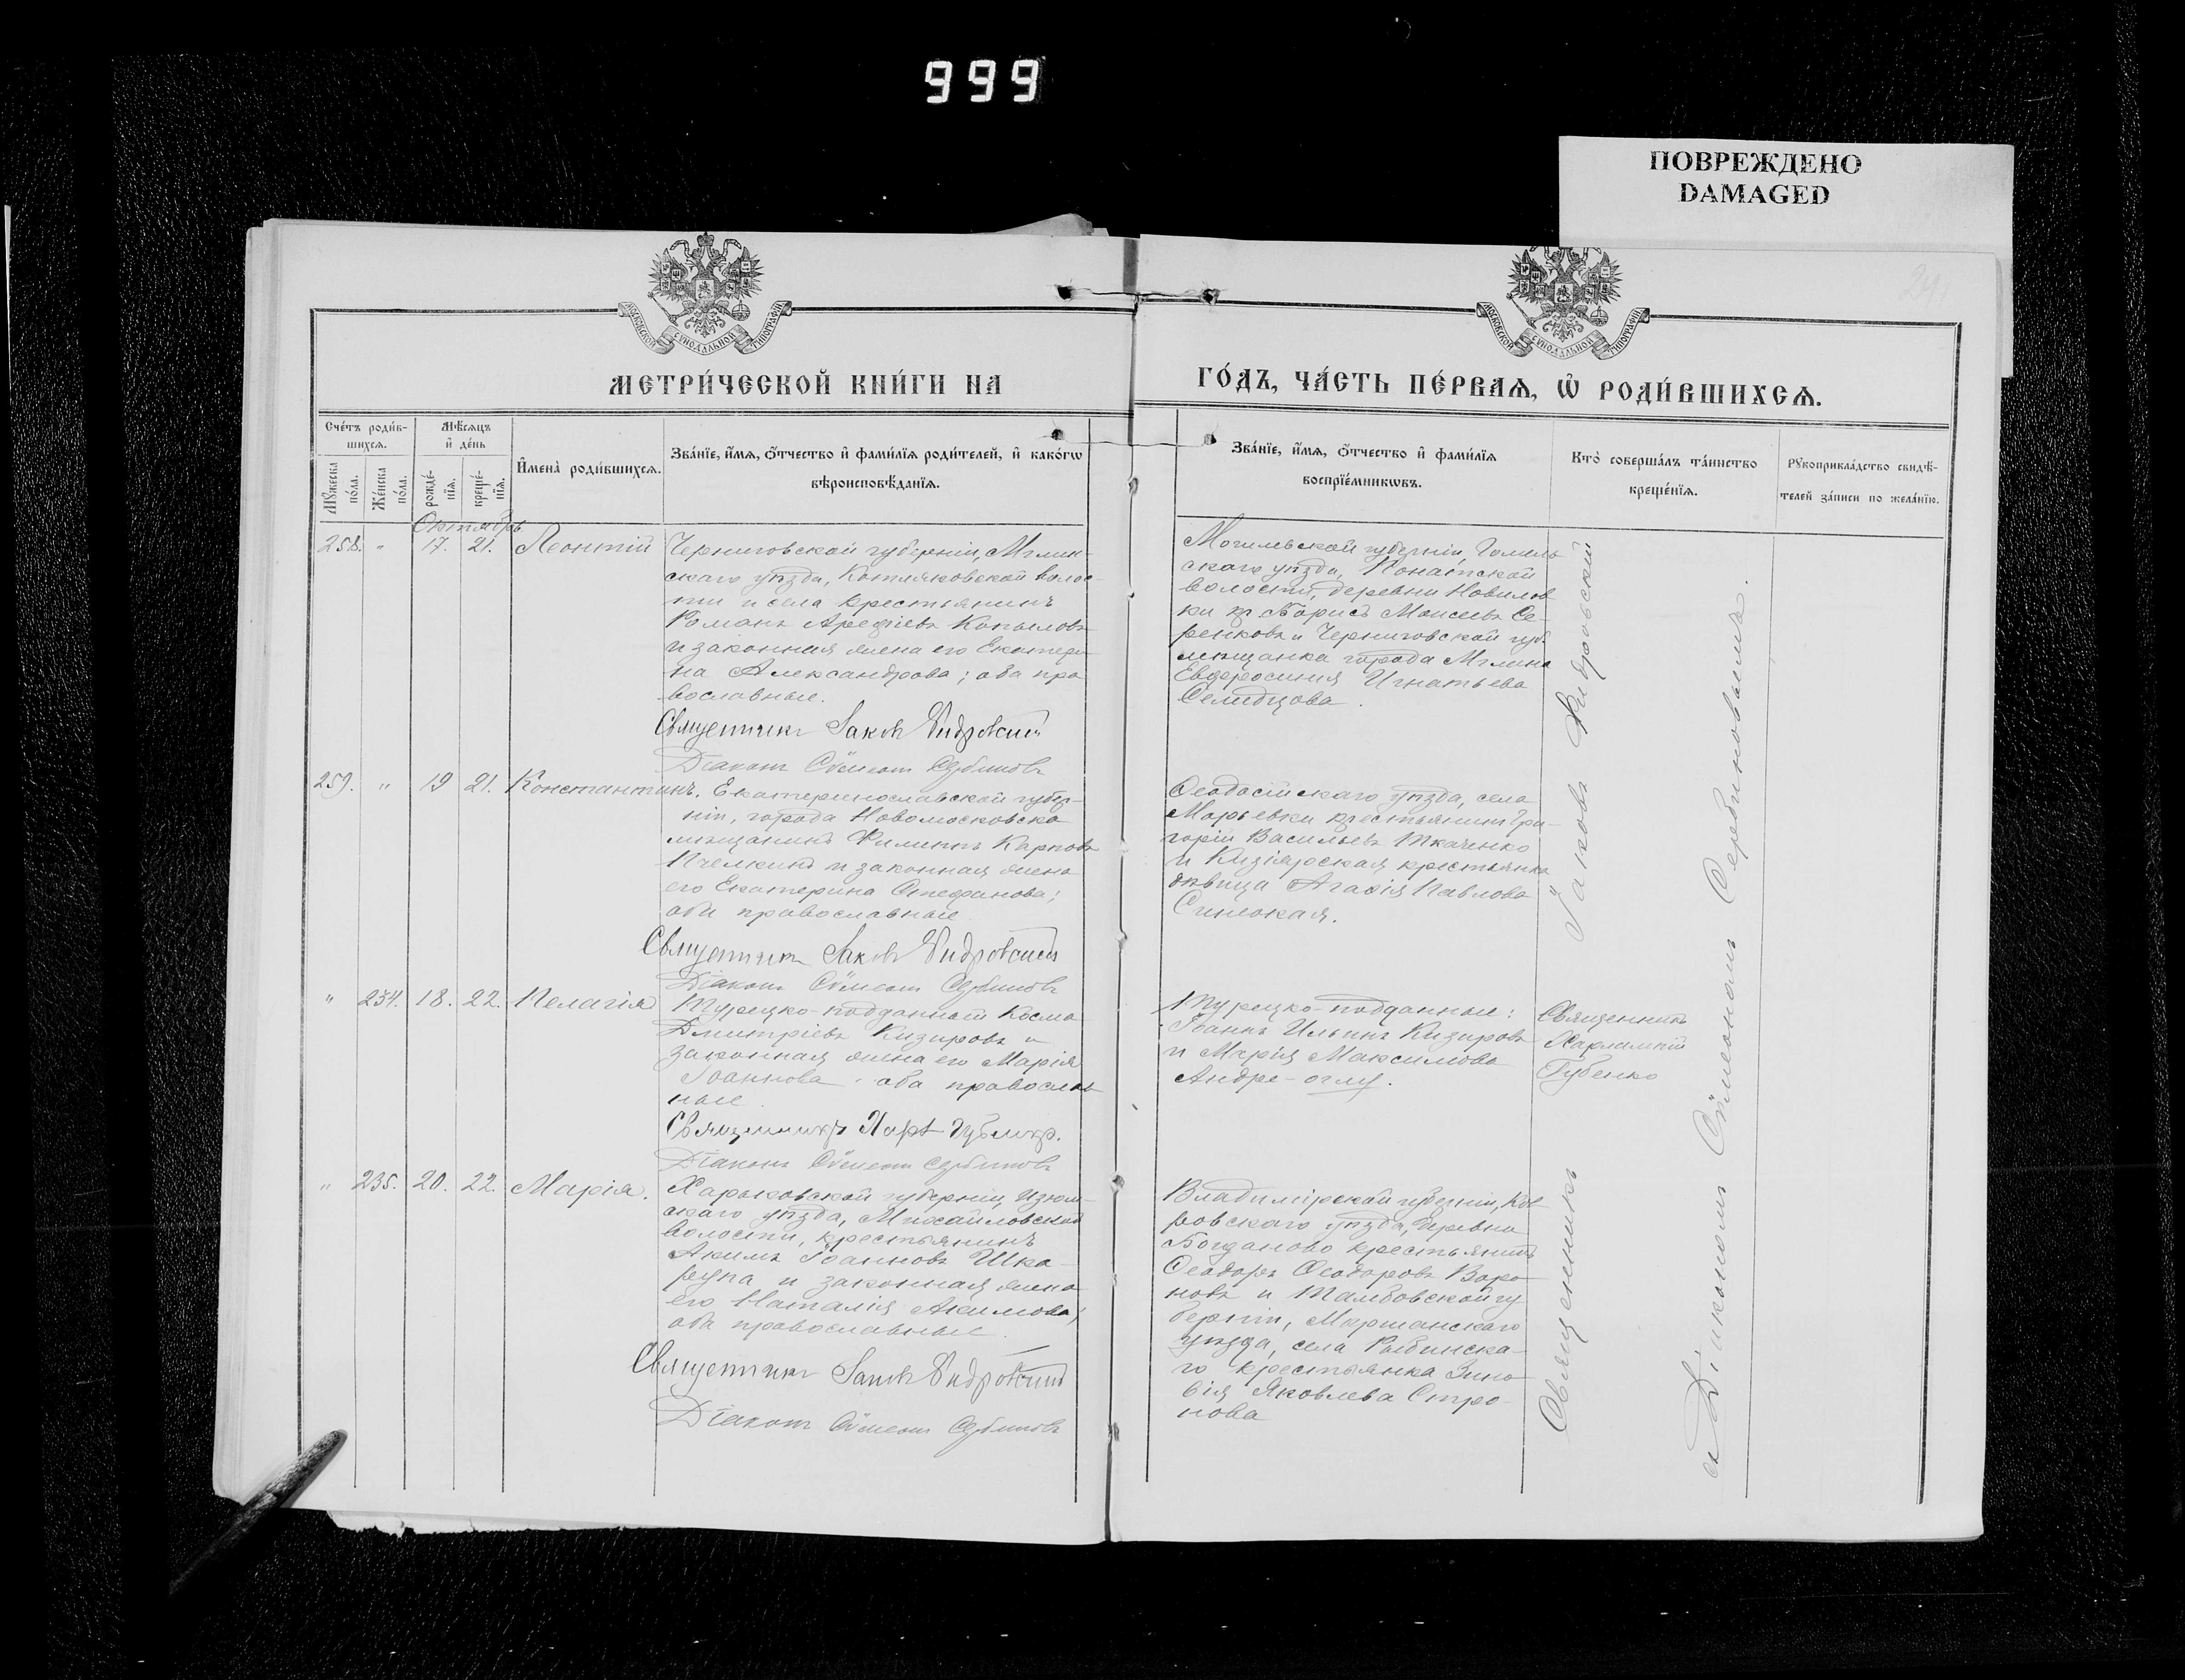 999
ПОВРЕЖДЕНО
DAMAGED
МОСКОВСКОЙ СѴНОДАЛЬНОЙ ТИПОГРАФІИ
МОСКОВСКОЙ СѴНОДАЛЬНОЙ ТИПОГРАФІИ
МЕТРИ́ЧЕСКОЙ КНИ́ГИ НА
ГО́ДЪ, ЧА́СТЬ ПЕ́РВАѦ, Ѡ҆ РОДИ́ВШИХСѦ.
Сче́тъ роди́в-
шихсѧ.
Мѣ́сѧцъ
и҆ де́нь
И҆мена̀ роди́вшихсѧ.
Зва́нїе, и҆́мѧ, о҆́тчество и҆ фами́лїѧ роди́телей, и҆ како́гѡ
вѣроисповѣ́данїѧ.
Мꙋ́жеска
по́ла.
Же́нска
по́ла.
рожде́-
нїѧ.
креще́-
нїѧ.
Зва́нїе, и҆́мѧ, о҆́тчество и҆ фами́лїѧ
воспрїе́мникѡвъ.
Кто̀ соверша́лъ та́инство
креще́нїѧ.
Рꙋкоприкла́дство свидѣ́-
телей за́писи по жела́нїю.
Октябрь
258. " 17. 21. Леонтій
Черниговской губерніи, Мглин-
скаго уѣзда, Котляковской волос-
ти и села крестьянинъ
Романъ Арефіевъ Копыловъ
и законная жена его Екатери-
на Александрова; оба пра
вославные.
Священникъ Іаковъ Видровскій
Діаконъ Сѵмеонъ Сербиновъ
Могилевской губерніи, Гомель
скаго уѣзда,
волости, деревни Новилов
ки кр. Борисъ Моисеевъ Се-
ренковъ и Черниговской губ.
мѣщанка города Мглина
Евфросинія Игнатьева
Селибцова.
259. " 19 21. Константинъ.
Екатеринославской губер-
ніи, города Новомосковска
мѣщанинъ Филиппъ Карповъ
Пчелкинъ и законная жена
его Екатерина Стефанова;
оба православные
Священникъ Іаковъ Видровскій
Діаконъ Сѵмеонъ Сербиновъ
Ѳеодосійскаго уѣзда, села
Марьевки крестьянинъ Гри-
горій Васильевъ Ткаченко
и Кизіярская крестьянка
дѣвица Агафія Павлова
Синеокая.
" 234. 18. 22. Пелагія
Турецко-подданный Косма
Дмитріевъ Кизировъ и
законная жена его Марія
Іоаннова оба православ
ные
Священникъ Харл Губенко.
Діаконъ Сѵмеонъ Сербиновъ
Турецко-подданные:
Іоаннъ Ильинъ Кизировъ
и Марія Максимова
Андре-оглу.
Священникъ
Харлампій
Губенко
" 235. 20. 22. Марія.
Харьковской губерніи, Изюм-
скаго уѣзда, Михайловской
волости, крестьянинъ
Акимъ Іоанновъ Шка-
рупа и законная жена
его Наталія Акимова;
оба православные
Священникъ Іаковъ Видровскій
Діаконъ Сѵмеонъ Сербиновъ
Владимірской губерніи, Ков
ровскаго уѣзда, деревни
Богданово крестьянинъ
Ѳеодоръ Ѳеодоровъ Варо
новъ и Тамбовской гу
берніи, Моршанскаго
уѣзда, села Рыбинска-
го крестьянка Зино
вія Яковлева Стро-
нова
Священникъ Іаковъ Видровскій
съ Діакономъ Сѵмеономъ Сербиновымъ.